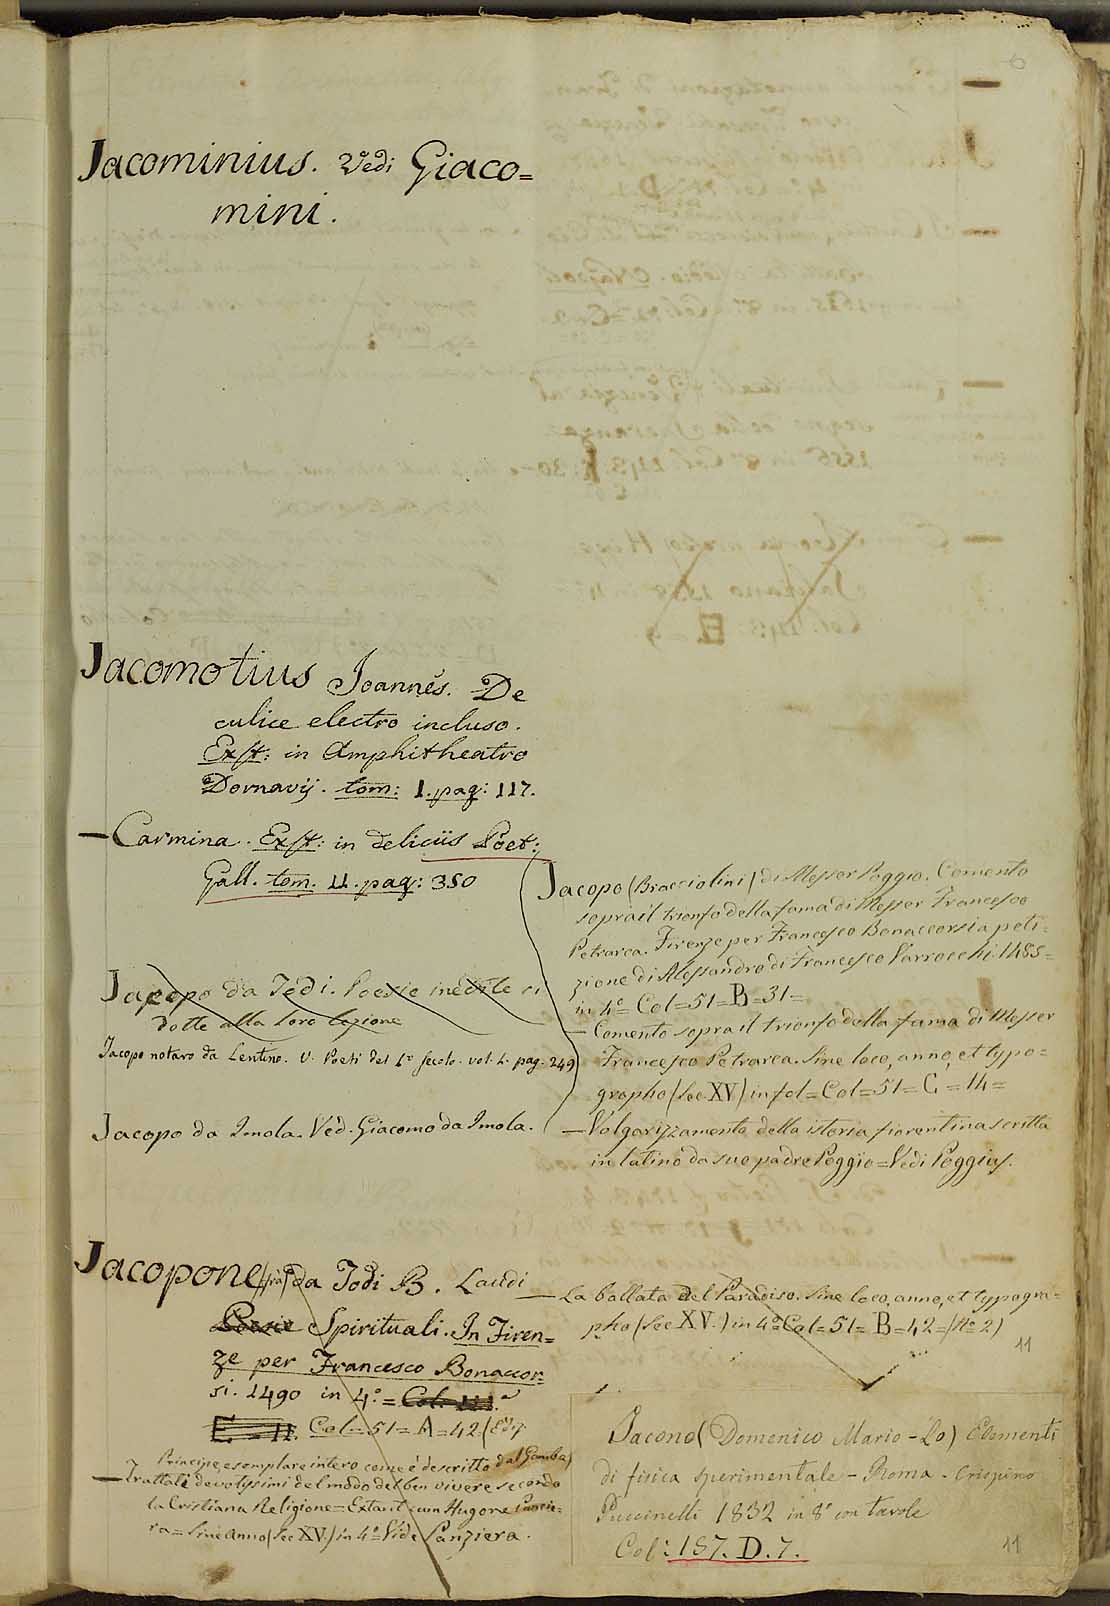 6
Jacominius. Vedi Giaco=
mini.
Jacomotius Joannes. De
culice electro incluso.
Exst: in Amphitheatro
Dornavij. tom: 1. pag: 117.
— Carmina. Exst: in deliciis Poet:
Gall. tom. II. pag: 350
Jacopo da Todi. Poesie inedite ri
dotte alla loro lezione
Jacopo notaro da Lentino. V. Poeti del 1° secolo. vol. 1. pag. 249
Jacopo da Imola. Ved. Giacomo da Imola.
Jacopone (frà) da Todi B. Laudi
Poesie Spirituali. In Firen=
ze per Francesco Bonaccor:
si. 1490 in 4.° = Col. III.
E = II. Col=51=A=42. (Ediz.
Principe, esemplare intero come è descritto dal Gamba)
— Trattati devotissimi del modo del ben vivere secondo
la Cristiana Religione = Extant cum Hugone Panzie=
ra = sine anno (Sec. XV.) in 4° Vide Panziera.
Jacopo (Bracciolini) di Messer Poggio. Comento
sopra il trionfo della fama di Messer Francesco
Petrarca. Firenze per Francesco Bonaccorsi a peti=
zione di Alessandro di Francesco Varrocchi. 1485=
in 4° Col=51=B=31=
— Comento sopra il trionfo della fama di Messer
Francesco Petrarca. Sine loco, anno, et typo=
grapho (Sec. XV) in fol=Col=51=C=14=
— Volgarizzamento della istoria fiorentina scritta
in latino da suo padre Poggio=Vedi Poggius.
— La ballata del Paradiso. Sine loco, anno, et typogra=
pho (Sec. XV.) in 4° Col=51=B=42=(N° 2)
11
Jacono (Domenico Mario-Lo) Elementi
di fisica sperimentale - Roma - Crispino
Puccinelli 1832 in 8° con tavole
Col: 187. D. 7.
11